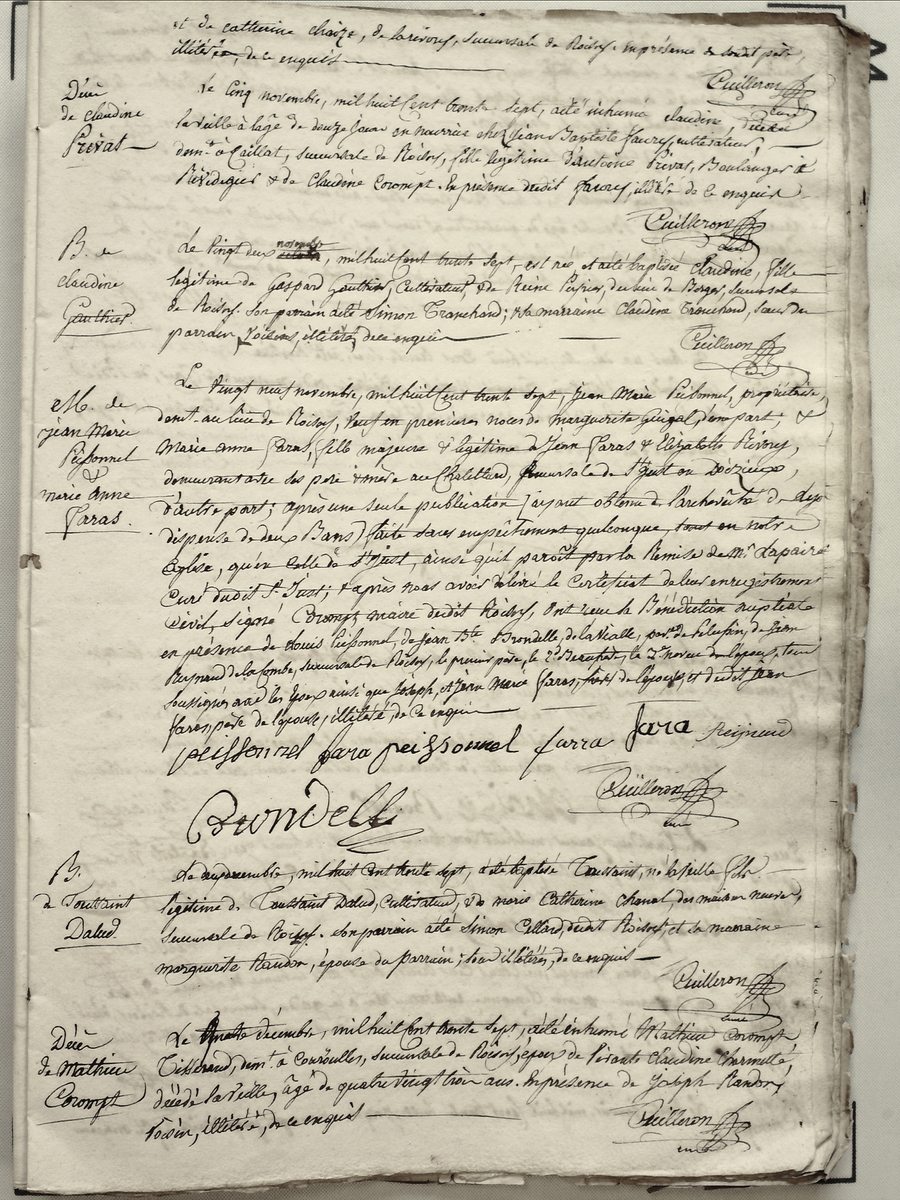 et de catherine chaize, de larivory, succursale de Roisey. En présence de sondit père,
illitéré, de ce enquis
Cuilleron
curé
Décès
de claudine
Privat
Le Cinq novembre, mil huit Cent trente sept, a été inhumé claudine, décédée
la veille à l'age de douze jours en nourrice chez jean Baptiste faury, cultivateur,
demt. à Caillat, succursale de Roisey, fille légitime d'antoine Privat, Boulanger à
& de Claudine Corompt. En présence dudit faury, illitéré de ce enquis
Cuilleron
curé
B. de
claudine
Gauthier
Le vingt deux novembre, mil huit Cent trente sept, est née et a été baptisée claudine, fille
légitime de Gaspard Gauthier, Cultivateur, & de Reine du lieu de Berger, succursale
de Roisey. son parrain a été Simon Tranchand; & sa marraine Claudine Tranchand, sœur du
parrain, voisins, illitérés, de ce enquis
Cuilleron
curé
M. de
jean Marie
Peissonnel
&
marie anne
faras.
Le vingt neuf novembre, mil huit Cent trente sept, jean Marie Peissonnel, propriétaire,
demt. au lieu de Roisey, veuf en premières noces de marguerite d'une part; &
Marie anne faras, fille majeure & légitime de Jean faras & Elizabeth
demeurant avec ses père & mère au Chalettard, succursale de St. just en
d'autre part; après une seule publication (ayant obtenu de l'archevêché de
dispense de deux Bans) faite sans empêchement quelconque, tant en notre
Eglise, qu'en Celle de St. just, ainsi qu'il paroît par la Remise de Mr. Lapaire
Curé dudit St. just; & après nous avoir délivré le Certificat de leur enregistrement
Civil, signé Corompt maire dudit Roisey, Ont reçu la Bénédiction nuptiale
en présence de Louis Peissonnel, de jean Bte. Brondelle, de la vialle, de Pelussin, de jean
Reynaud de la Combe, succursale de Roisey, le premier père, le 2d. Beaufrère, le 3e. neveu de l'époux, tous
soussignés avec les Epoux ainsi que joseph, et jean Marie faras, frères de l'épouse, et dudit jean
faras, père de l'épouse, illitéré, de ce enquis
peissonnel fara peissonnel farra fara Reignaud
Cuilleron
curé
Brondelle
B.
de Toussaint
Dalud
mil huit Cent trente sept, a été baptisé Toussaint, né la veille fils
légitime de Toussaint Dalud, Cultivateur, & de marie Catherine Chanal, des maisons neuves,
succursale de Roisey. son parrain a été Simon Cellard, dudit Roisey, et sa marraine
marguerite Randon, épouse du parrain; tous illitérés, de ce enquis
Cuilleron
curé
Décès
de Mathieu
Corompt
Le quatre décembre, mil huit Cent trente sept, a été inhumé Mathieu Corompt,
Tisserand, demt. à succursale de Roisey, époux de vivante Claudine Charmille,
décédé la veille, âgé de quatre vingt trois ans. En présence de joseph Randon,
voisin, illitéré, de ce enquis
Cuilleron
curé